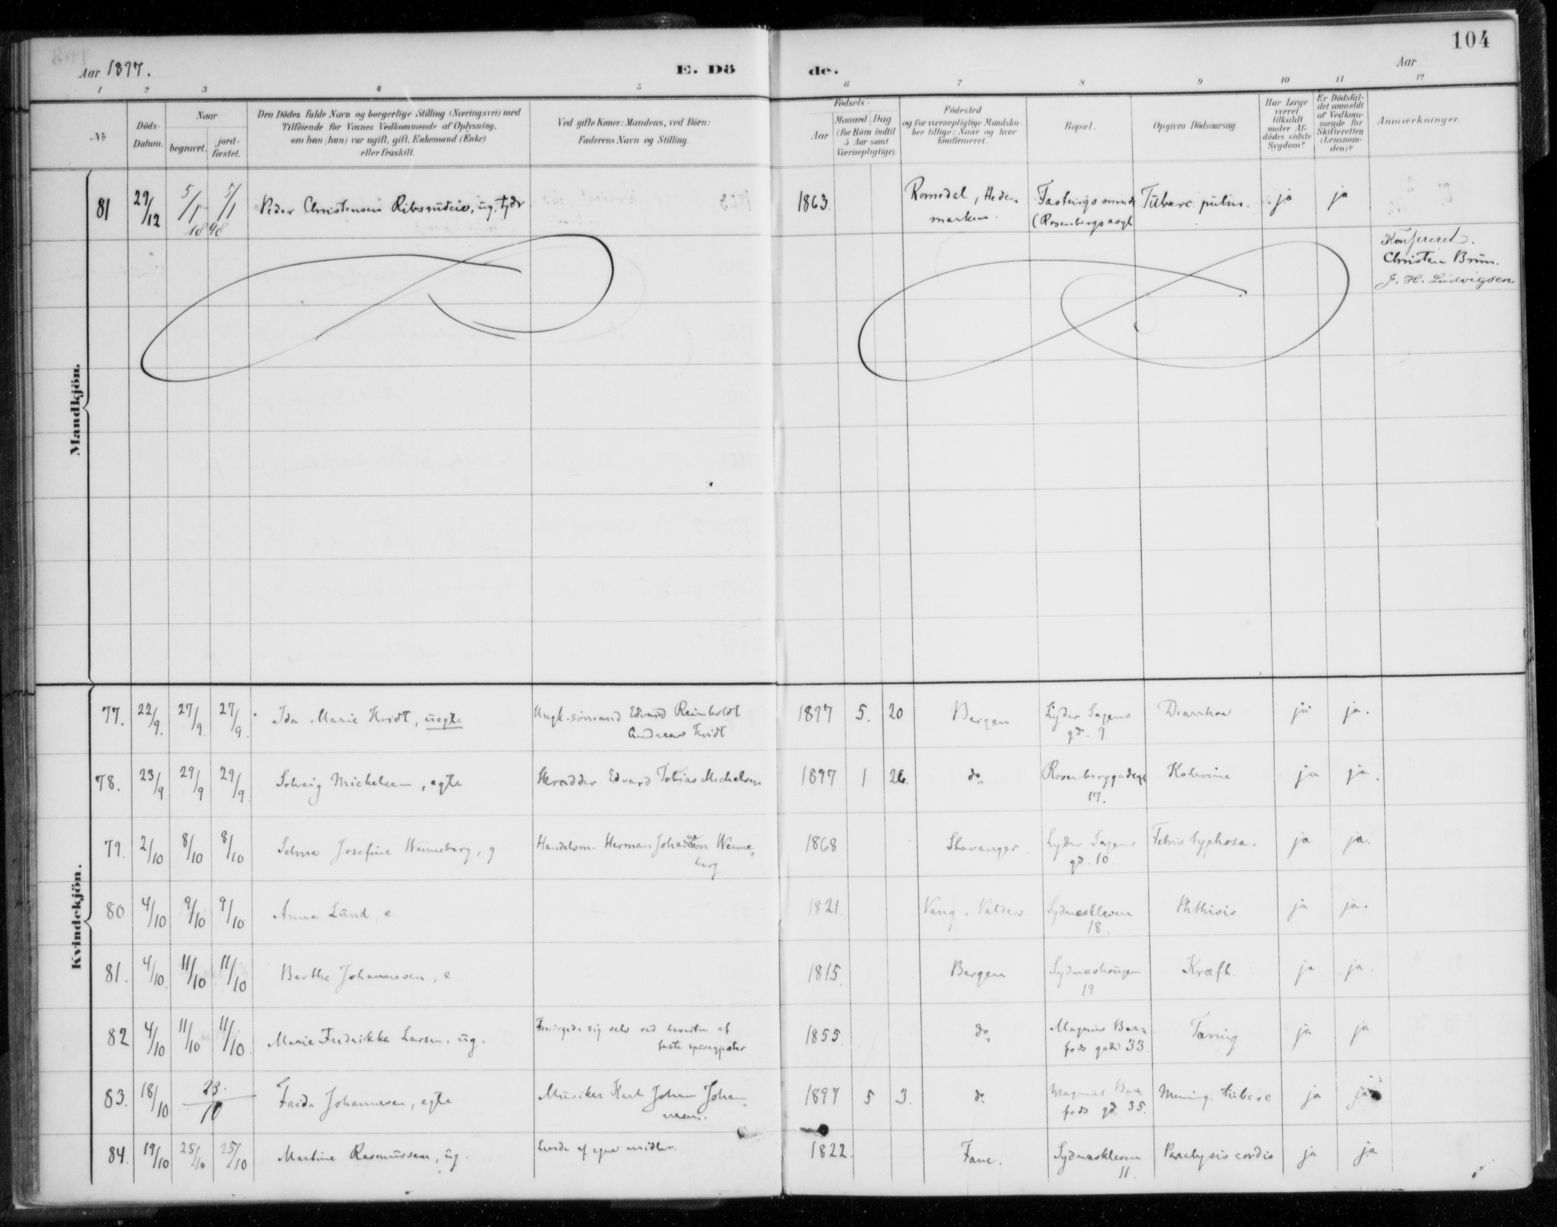 104
Aar 1897.
E. Dö
de.
Aar
1 2 3 4 5 6 7 8 9 10 11 12
No
Döds-Datum.
Naar
begravet.
jord-fæstet.
Den Dödes fulde Navn og borgerlige Stilling (Næringsvei) med
Tilföiende for Voxnes Vedkommende af Oplysning,
om han (hun) var ugift, gift, Enkemand (Enke)
eller fraskilt.
Ved gifte Koner: Mandens, ved Börn:
Faderens Navn og Stilling.
Födsels-
Aar
Maaned Dag
(for Börn indtil
5 Aar samt
Værnepligtige).
Födested
og for værnepligtige Mandska-
ber tillige: Naar og hvor
konfirmeret.
Bopæl.
Opgiven Dödsaarsag.
Har Læge
været
tilkaldt
under Af-
dödes sidste
Sygdom?
Er Dödsfal-
det anmeldt
af Vedkom-
mende for
Skifteretten
(Lensman-
den)?
Anmærkninger.
Mandkjön.
81 29/12 5/1 5/1 Peder Christensen ug. 1863 Romedal, Hede- ja ja
1898 marken.
Konfereret.
Christen Brun.
J. H. Ludvigsen
Kvindekjön.
77. 22/9. 27/9. 27/9. Ida Marie Kvidt, uegte Ungk. sömand Edvard Reinholdt 1897 5. 20 Bergen Lyder Sagens Diarrhoe ja ja.
Andreas Kvidt gd. 9.
78. 23/9 29/9 29/9. Solveig Michelsen, egte Skrædder Edvard Tobias Michelsen 1897 1 26. do. Rosenberggaden Kolerine ja ja.
17.
79. 2/10 8/10 8/10 Selma Josefine Wenneberg, g Handelsm. Herman Wenne- 1868 Stavanger Lyder Sagens Febris typhosa. ja ja.
berg gd. 10.
80 4/10 9/10 9/10 Anna Lund, e 1821 Vang, Valders Sydneskleven Phthisis ja ja.
18.
81. 4/10. 11/10 11/10 Berthe Johannesen, e 1815. Bergen Sydneshougen Kræft ja ja.
19
82 4/10 11/10 11/10. Marie Fredrikke Larsen, ug. Forsörgede sig selv ved af 1855. do. Magnus Bar- Tæring ja ja
fods gade 33
83. 18/10 23/10 Frida Johannesen, egte Musiker Karl Johan Johan- 1897 5 3. do Magnus Bar- Mening. tuberc ja ja
nesen. fods gd. 35.
84. 19/10 25/10 25/10 Martine Rasmussen, ug. levede af egne midler. 1822. Fane. Sydneskleven Paralysis cordis ja ja
11.